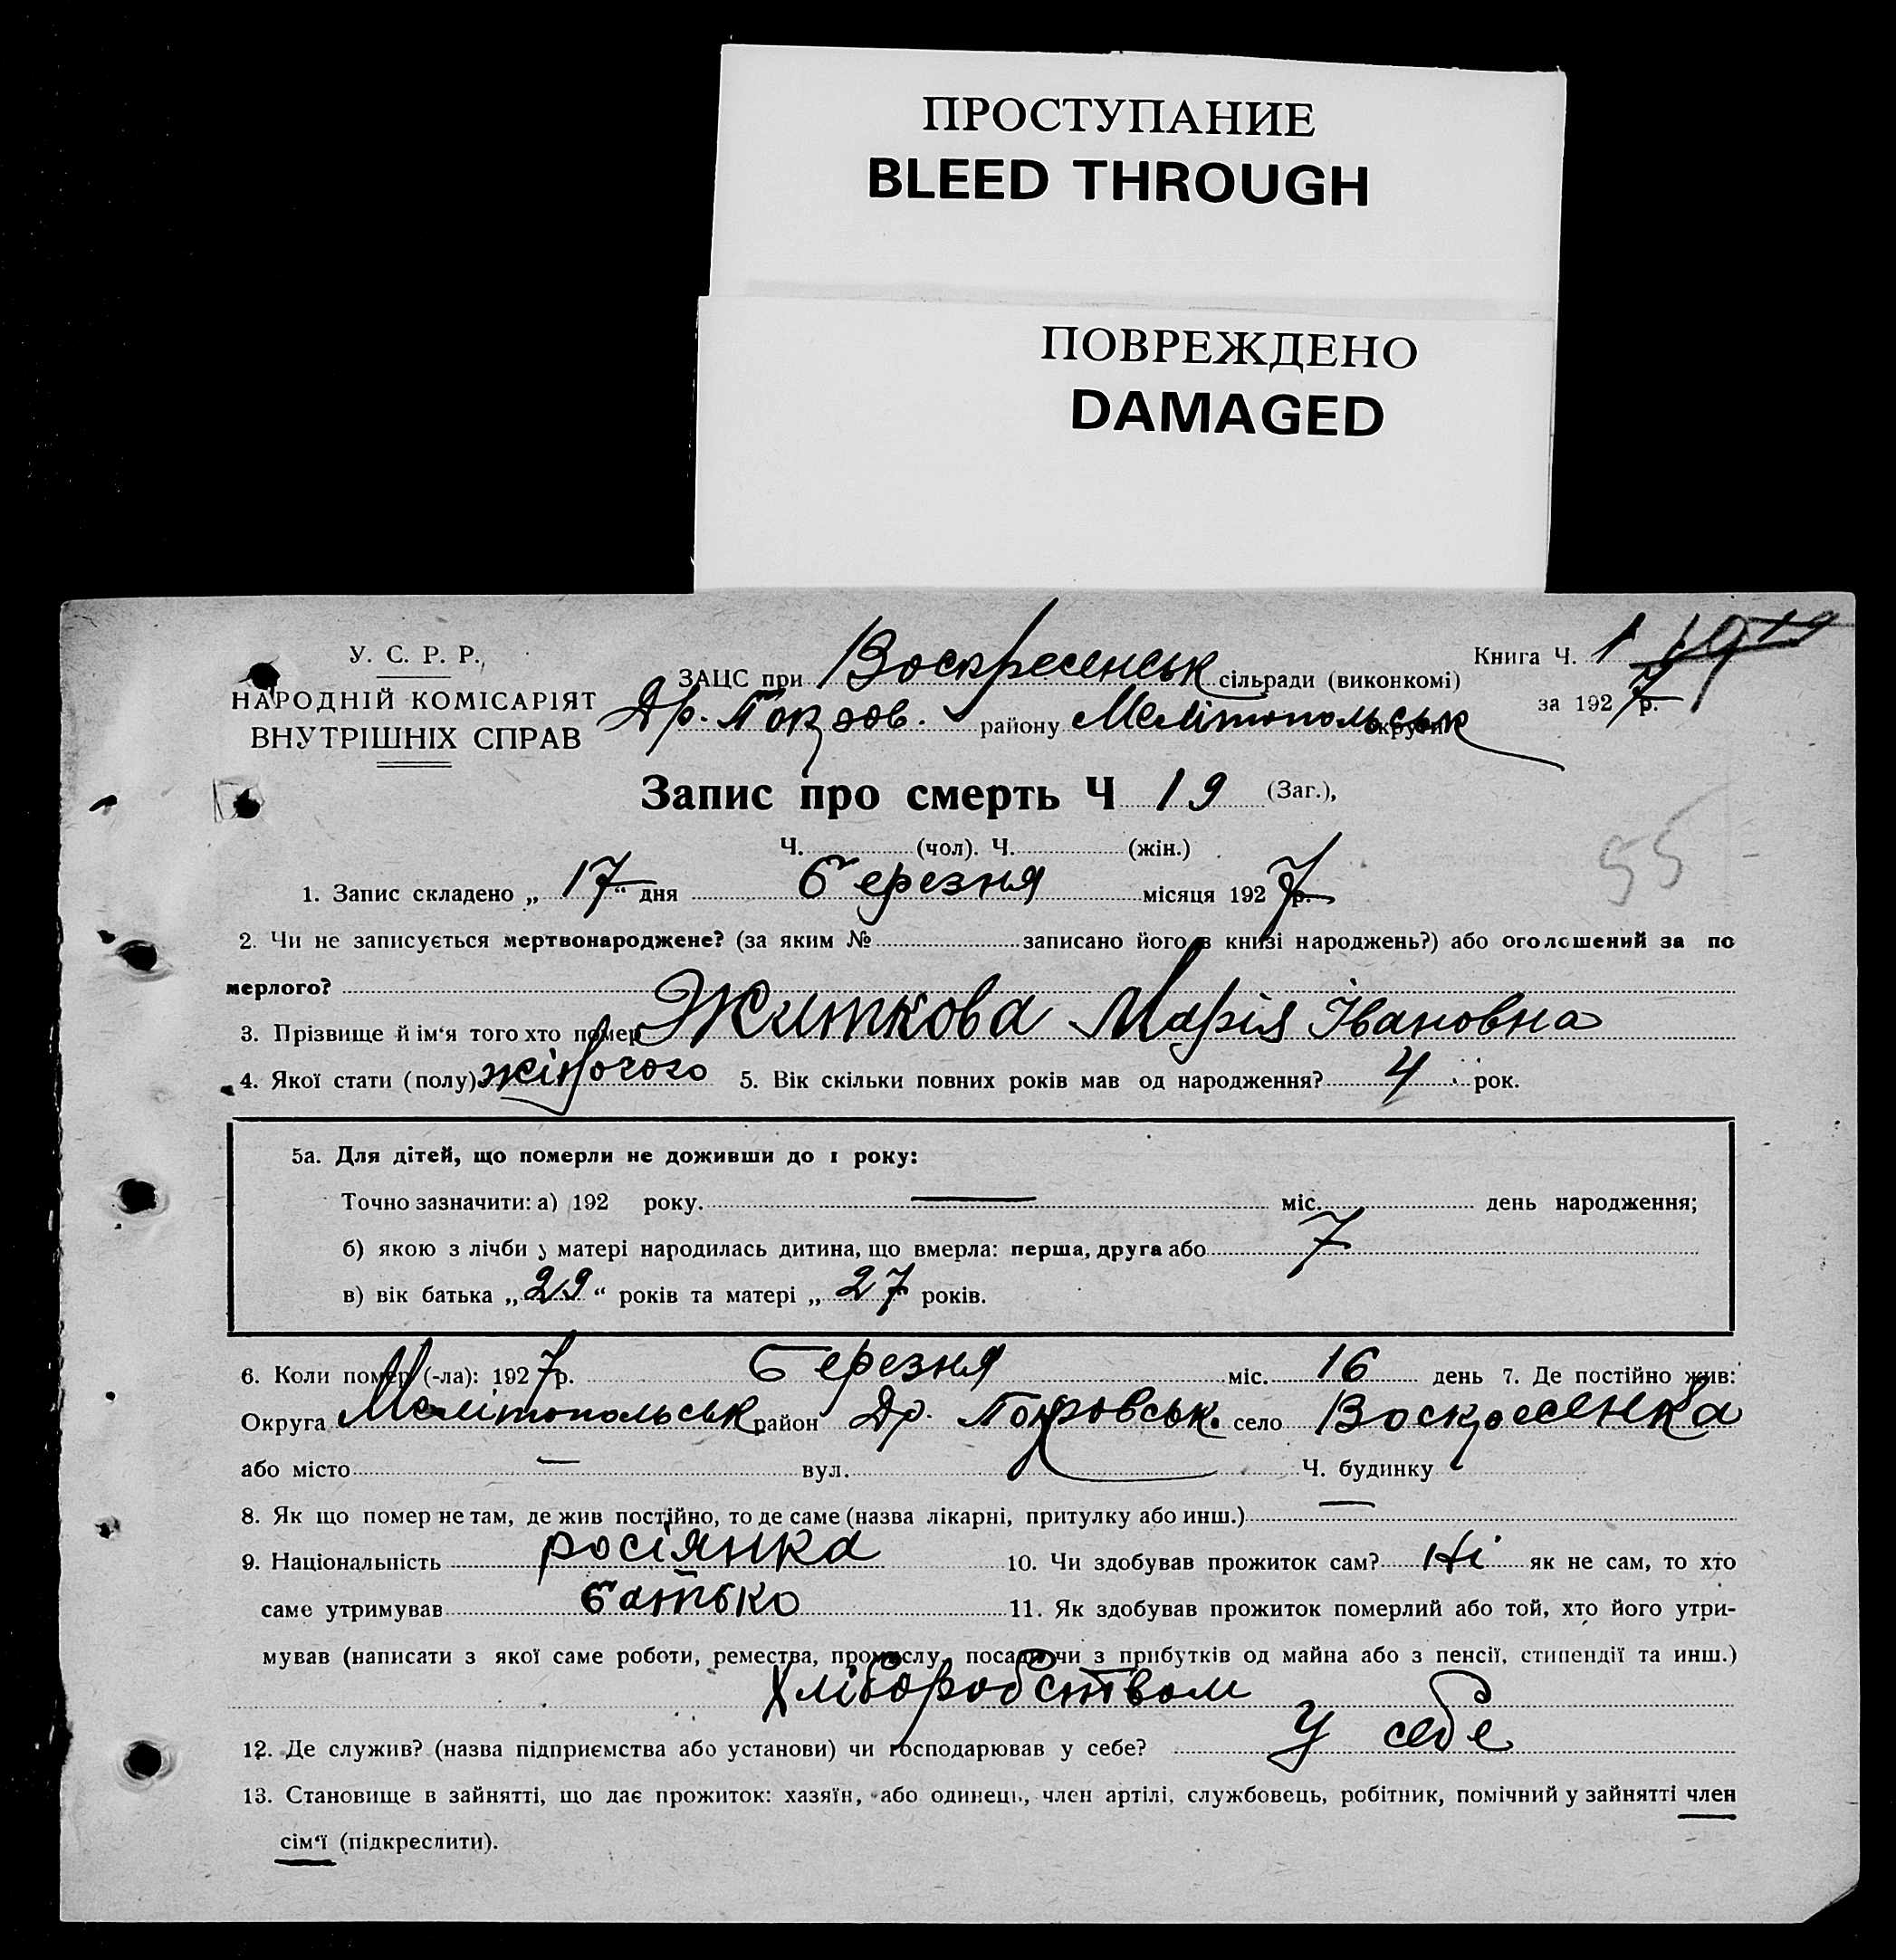 ПРОСТУПАНИЕ
BLEED THROUGH
ПОВРЕЖДЕНО
DAMAGED
У. С. Р. Р.,
НАРОДНІЙ КОМІСАРІЯТ
ВНУТРІШНІХ СПРАВ
Книга Ч. 1 19
за 1927 р.
ЗАЦС при Воскресенськ сільради (виконкомі)
Др. Покров. району Мелітопольськ округи
Запис про смерть Ч 19 (Заг.),
Ч. (чол). Ч. (жін.)
55
1. Запис складено „ 17 “ дня Березня місяця 1927 р.
2. Чи не записується мертвонароджене? (за яким № записано його в книзі народжень?) або оголошений за по
мерлого?
3. Прізвище й ім‘я того хто помер Житкова Марія Івановна
4. Якої стати (полу) жіночого 5. Вік скільки повних років мав од народження? 4 рок.
5а. Для дітей, що померли не доживши до 1 року:
Точно зазначити: а) 192 року. міс. день народження;
б) якою з лічби у матері народилась дитина, що вмерла: перша, друга або 7
в) вік батька „ 29 “ років та матері „ 27 років.
6. Коли помер (-ла): 1927 р. Березня міс. 16 день 7. Де постійно жив:
Округа Мелітопольськ район Др. Покровськ. село Воскресенка
або місто — вул. Ч. будинку
8. Як що помер не там, де жив постійно, то де саме (назва лікарні, притулку або инш.) —
9. Національність росіянка 10. Чи здобував прожиток сам? Ні як не сам, то хто
саме утримував батько 11. Як здобував прожиток померлий або той, хто його утри-
мував (написати з якої саме роботи, ремества, промислу, посади чи з прибутків од майна або з пенсії, стипендії та инш.)
Хліборобством
12. Де служив? (назва підприємства або установи) чи господарював у себе? У себе
13. Становище в зайнятті, що дає прожиток: хазяїн, або одинець, член артілі, службовець, робітник, помічний у зайнятті член
сім‘ї (підкреслити).